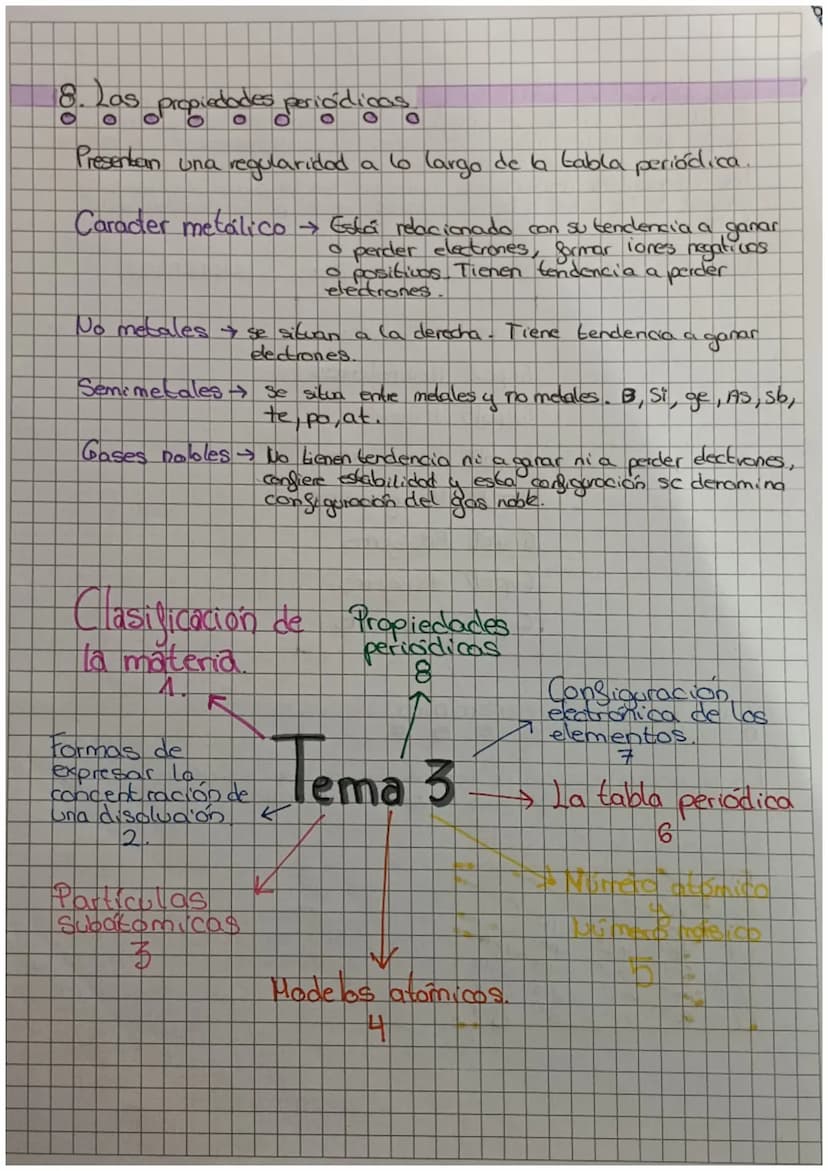 8. Las propiedades periódicas
Presentan una regularidad a lo largo de la tabla periódica.
Caracter metálico → Está relacionado con su tendencia a ganar
o perder electrones, formar iones negativos
o positivos. Tienen tendencia a perder
electrones.
No metales → se situan a la derecha. Tiene tendencia a ganar
electrones.
Semimetales → se situa entre metales y no metales. B, Si, ge, As, sb,
te, po, at.
Gases nobles → No tienen tendencia ni a ganar ni a perder electrones,
confiere estabilidad y esta configuración se denomina
configuración del gas noble.
Clasificación de
la materia.
1.
Propiedades
periódicos
8
Configuración
electrónica de los
elementos.
7
Formas de
expresar la
concentración de
una disolución
2.
Tema 3
La tabla periódica
6
Partículas
subatómicas
3
Número atómico
y
Número másico
5
Modelos atómicos.
4